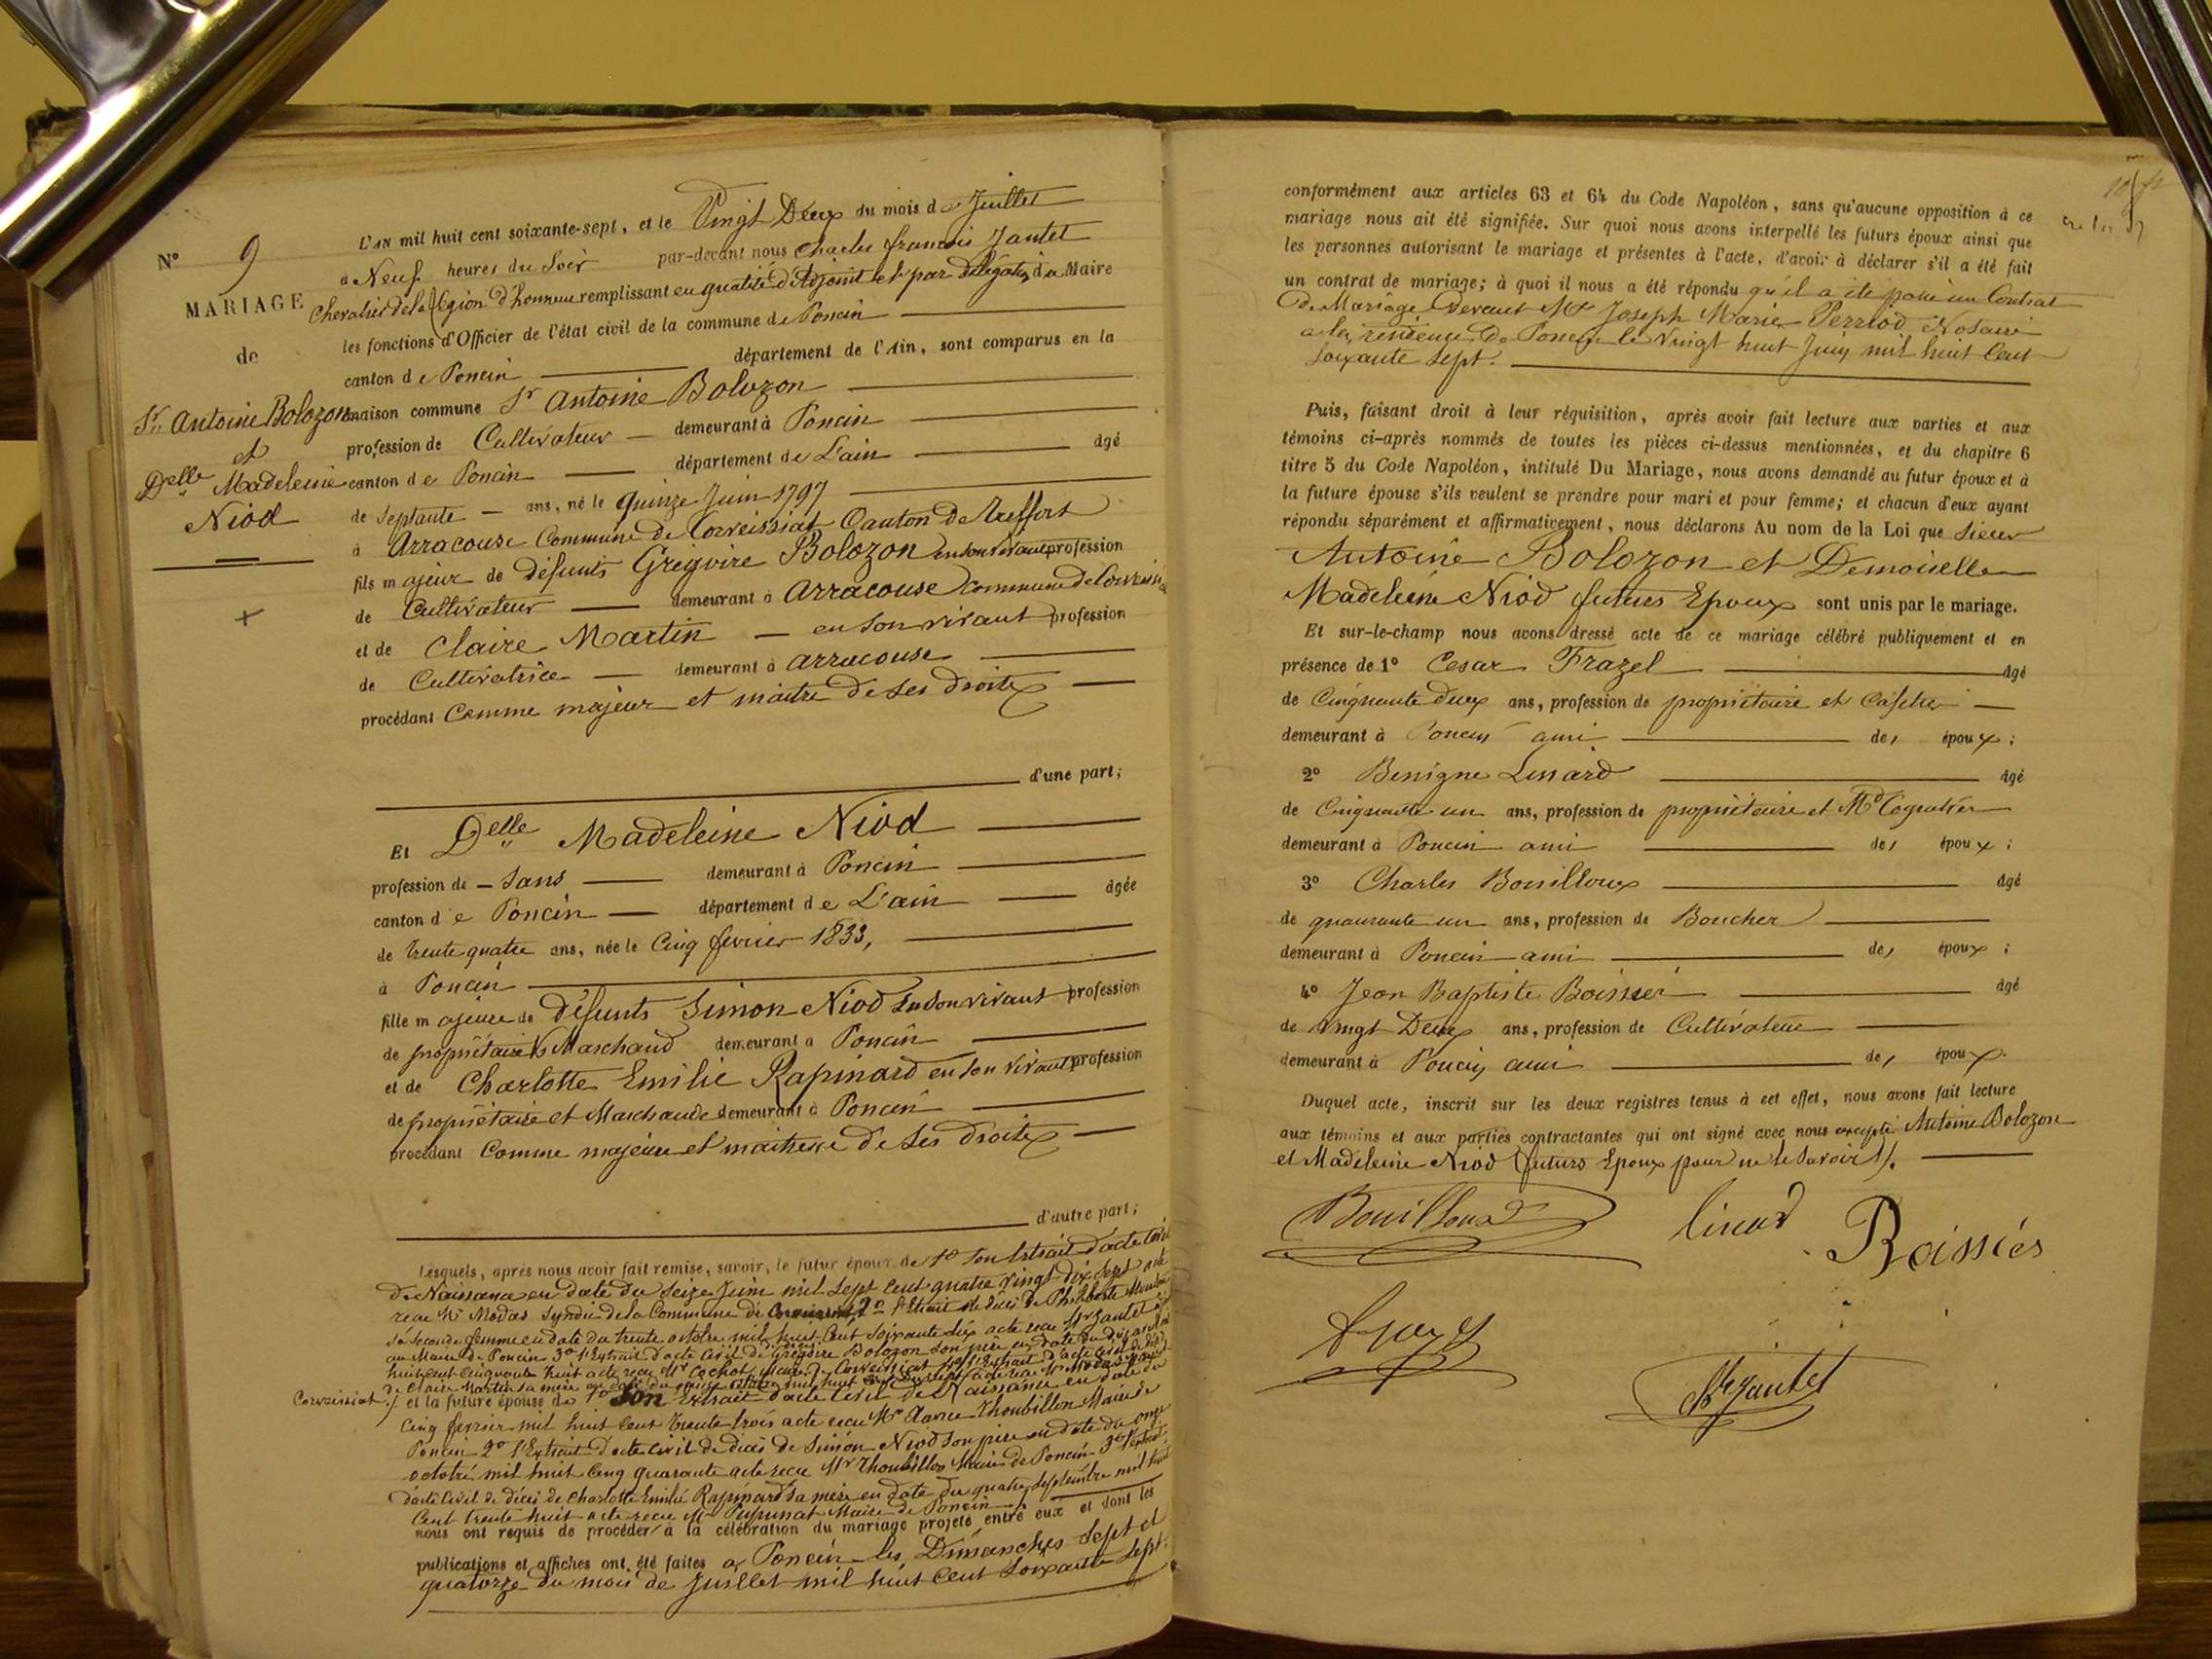 N° 9
MARIAGE
de
Sr Antoine Bolozon
et
Delle Madeleine
Niod
L'AN mil huit cent soixante-sept, et le Vingt Deux du mois de Juillet
à Neuf heures du Soir par-devant nous Charles françois Jantet
Chevalier de la Légion d'honneur remplissant en qualité d'Adjoint et par délégation du Maire
les fonctions d'Officier de l'état civil de la commune de Poncin
canton de Poncin département de l'Ain, sont comparus en la
maison commune Sr Antoine Bolozon
profession de Cultivateur demeurant à Poncin
canton de Poncin département de L'ain âgé
de Septante ans, né le quinze Juin 1797
à Arracouse Commune de Corveissiat Canton de Treffort
fils majeur de défunts Grégoire Bolozon en son vivant profession
de Cultivateur demeurant à Arracouse Commune de Corveissiat
et de Claire Martin en son vivant profession
de Cultivatrice demeurant à arracouse
procédant Comme majeur et maitre de ses droits
d'une part;
Et Delle Madeleine Niod
profession de Sans demeurant à Poncin
canton de Poncin département de L'ain âgée
de trente quatre ans, née le Cinq fevrier 1833,
à Poncin
fille majeure de défunts Simon Niod en son vivant profession
de propriétaire & Marchand demeurant à Poncin
et de Charlotte Emilie Rapinard en son vivant profession
de propriétaire et Marchande demeurant à Poncin
procédant Comme majeure et maitresse de ses droits
d'autre part;
Lesquels, après nous avoir fait remise, savoir, le futur époux de 1° Son Extrait d'acte Civil
de Naissance en date du Seize Juin mil Sept Cent quatre vingt dix Sept acte
reçu Mr Modas Syndic de la Commune de 2° l'Extrait de décès de Philiberte
Sa Seconde femme en date du trente octobre mil huit Cent Soixante Six acte reçu Mr Jantet
au Maire de Poncin 3° l'Extrait d'acte Civil de décès de Grégoire Bolozon Son père en date du
huit Cent Cinquante huit acte reçu Mr Cochet Maire de Corveissiat 4° l'Extrait d'acte Civil de décès
de Claire Martin Sa mère en date du mil huit Cent acte reçu Mr Modas
Corveissiat ./. et la future épouse de 1° Son Extrait d'acte Civil de Naissance en date du
Cinq fevrier mil huit Cent trente trois acte reçu Mr Thoubillon Maire de
Poncin 2° l'Extrait d'acte Civil de décès de Simon Niod Son père en date du onze
octobre mil huit Cent quarante acte reçu Mr Thoubillon Maire de Poncin 3° l'Extrait
d'acte Civil de décès de Charlotte Emilie Rapinard Sa mère en date du quatre Septembre mil huit
Cent trente huit acte reçu Mr Maire de Poncin
nous ont requis de procéder à la célébration du mariage projeté entre eux et dont les
publications et affiches ont été faites à Poncin les Dimanches Sept et
quatorze du mois de Juillet mil huit Cent Soixante Sept.
conformément aux articles 63 et 64 du Code Napoléon, sans qu'aucune opposition à ce
mariage nous ait été signifiée. Sur quoi nous avons interpellé les futurs époux ainsi que
les personnes autorisant le mariage et présentes à l'acte, d'avoir à déclarer s'il a été fait
un contrat de mariage; à quoi il nous a été répondu qu'il a été passé un Contrat
de Mariage devant Me Joseph Marie Perriod Notaire
à la résidence de Poncin le Vingt huit Juin mil huit Cent
soixante Sept.
Puis, faisant droit à leur réquisition, après avoir fait lecture aux parties et aux
témoins ci-après nommés de toutes les pièces ci-dessus mentionnées, et du chapitre 6
titre 5 du Code Napoléon, intitulé Du Mariage, nous avons demandé au futur époux et à
la future épouse s'ils veulent se prendre pour mari et pour femme; et chacun d'eux ayant
répondu séparément et affirmativement, nous déclarons Au nom de la Loi que Sieur
Antoine Bolozon et Demoiselle
Madeleine Niod futurs Epoux sont unis par le mariage.
Et sur-le-champ nous avons dressé acte de ce mariage célébré publiquement et en
présence de 1° Cesar Frazel âgé
de Cinquante deux ans, profession de propriétaire et Cafetier
demeurant à Poncin ami des époux;
2° Benigne Linard âgé
de Cinquante un ans, profession de propriétaire et Md
demeurant à Poncin ami des époux;
3° Charles Bouilloux âgé
de quarante un ans, profession de Boucher
demeurant à Poncin ami des époux;
4° Jean Baptiste Boissier âgé
de vingt Deux ans, profession de Cultivateur
demeurant à Poncin ami des époux.
Duquel acte, inscrit sur les deux registres tenus à cet effet, nous avons fait lecture
aux témoins et aux parties contractantes qui ont signé avec nous excepté Antoine Bolozon
et Madeleine Niod futurs Epoux pour ne le Savoir ./.
Bouilloux
Linard
Boissiés
Ch Jantet